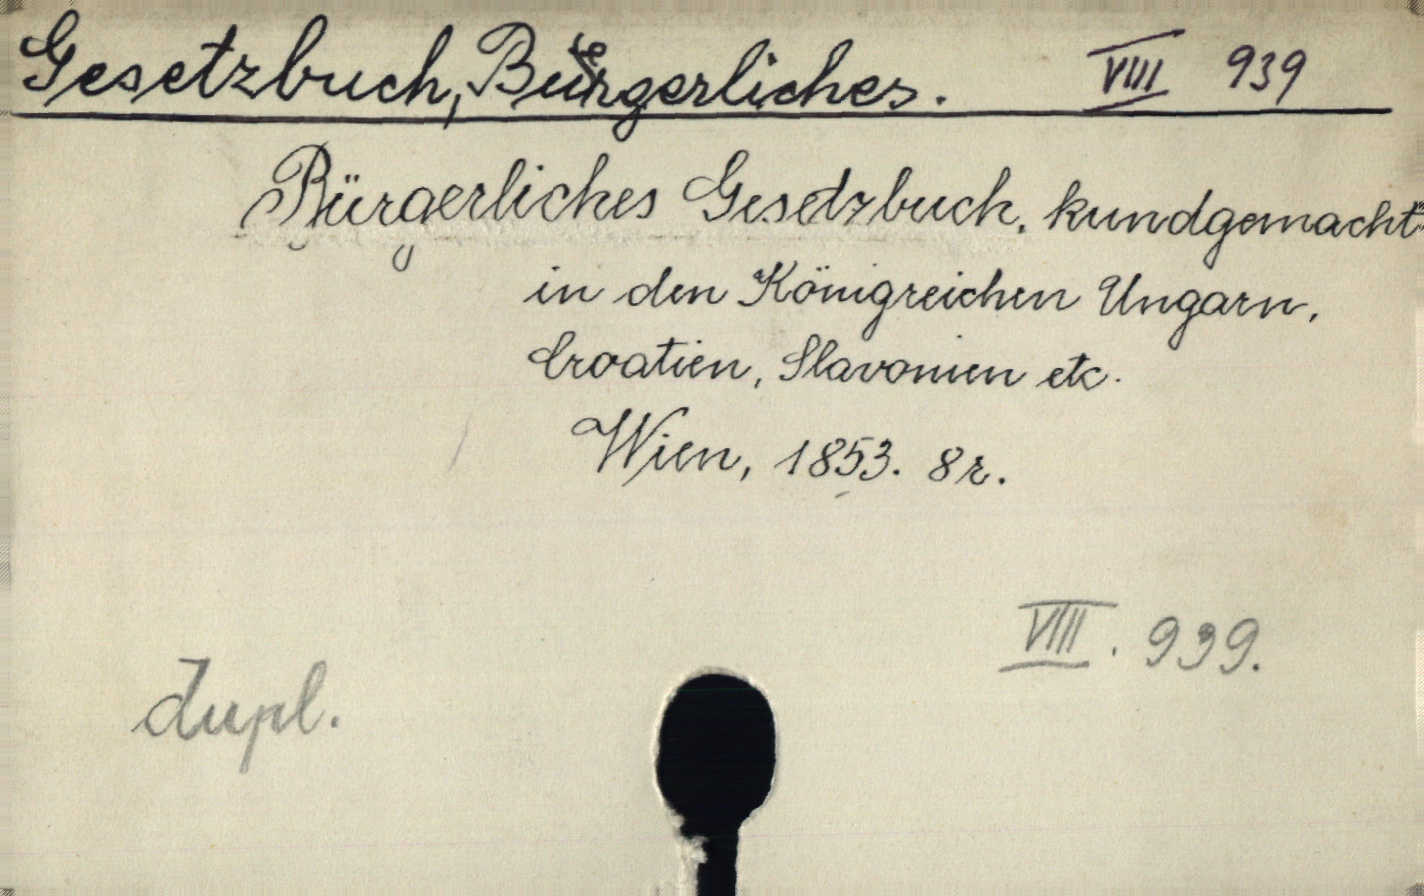 Gesetzbuch, Bürgerliches. VIII 939
Bürgerliches Gesetzbuch, kundgemacht
in den Königreichen Ungarn,
Croatien, Slavonien etc.
Wien, 1853. 8r.
VIII. 939.
dupl.